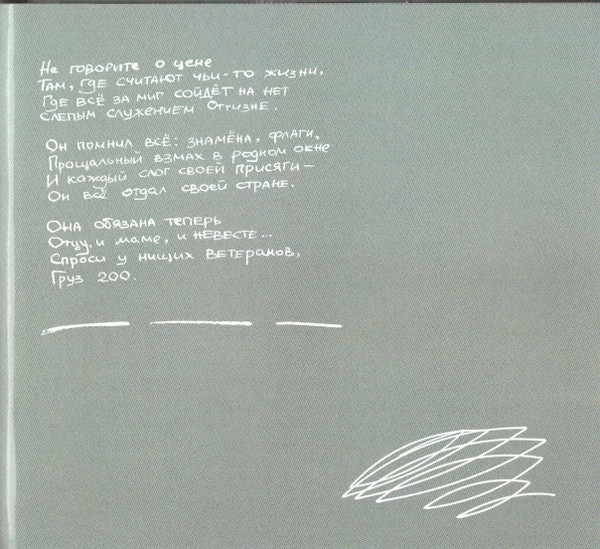 Не говорите о цене
Там, где считают чьи-то жизни,
Где всё за миг сойдёт на нет
Слепым служением Отчизне.
Он помнил всё: знамёна, флаги,
Прощальный взмах в родном окне
И каждый слог своей присяги –
Он всё отдал своей стране.
Она обязана теперь
Отцу, и маме, и невесте...
Спроси у нищих ветеранов,
Груз 200.